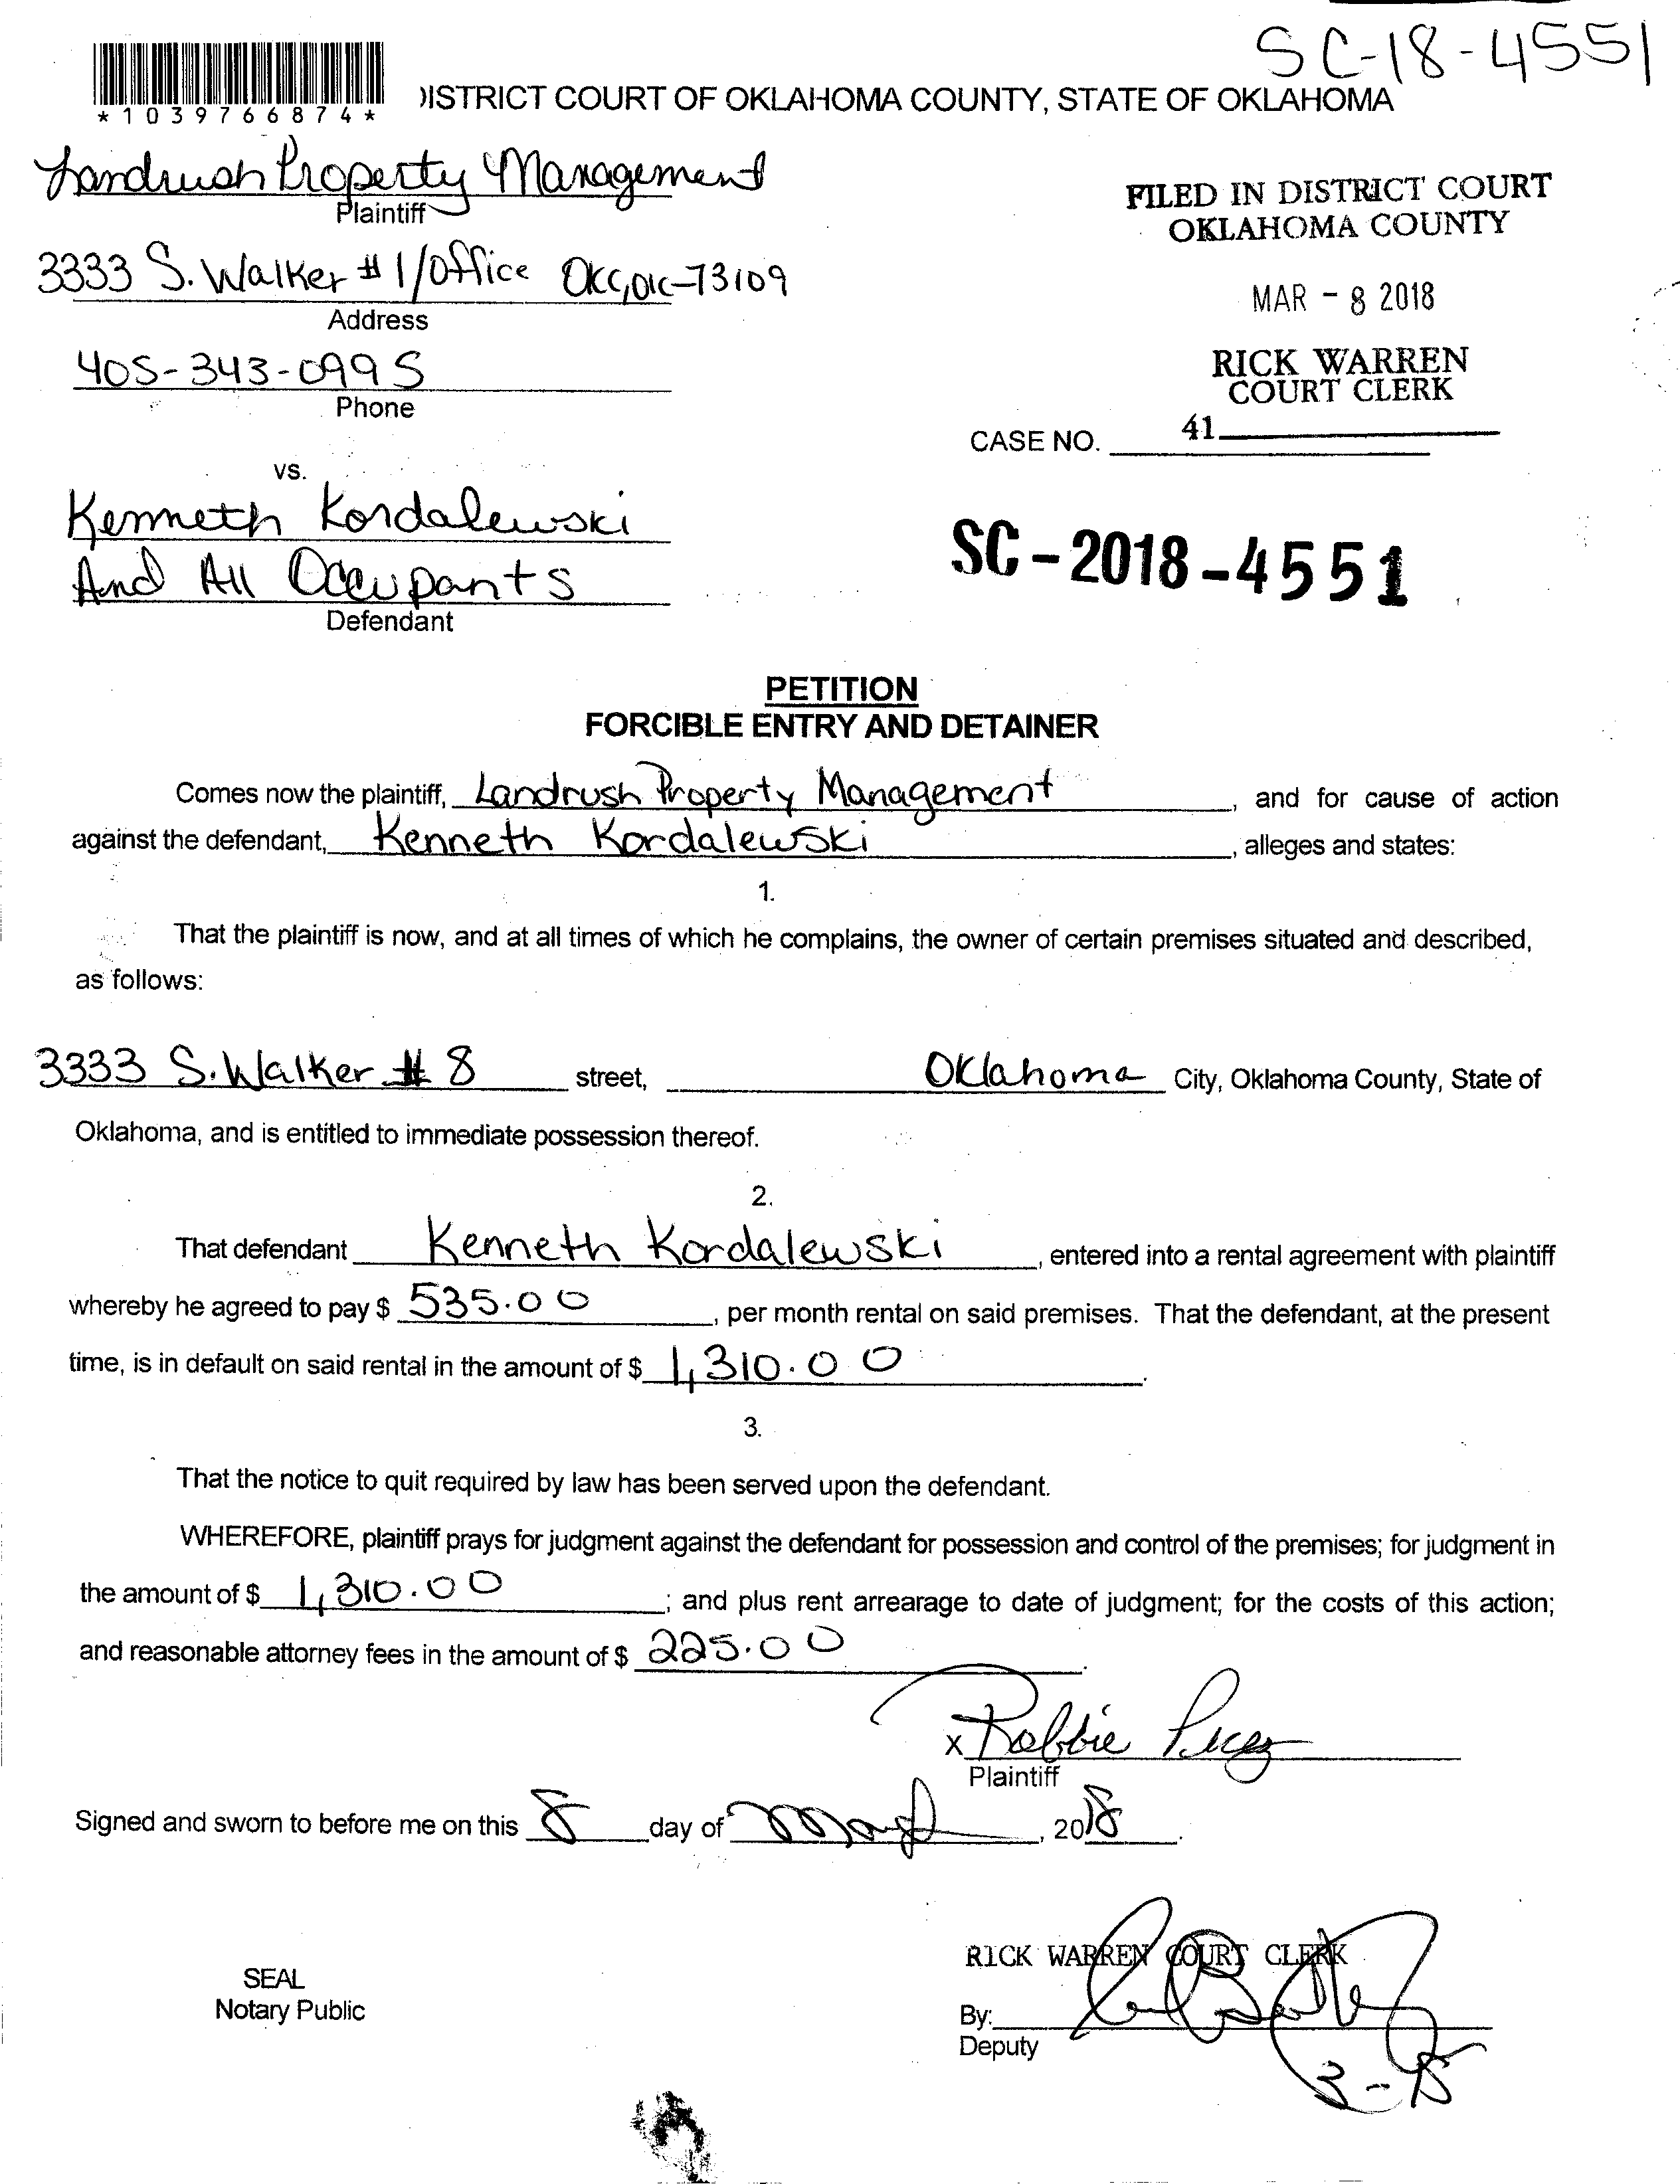 SC-18-4551
*1039766874*
DISTRICT COURT OF OKLAHOMA COUNTY, STATE OF OKLAHOMA
Landrush Property Management
Plaintiff
FILED IN DISTRICT COURT
OKLAHOMA COUNTY
3333 S. Walker #1/Office OKC, OK-73109
Address
MAR - 8 2018
405-343-0995
Phone
RICK WARREN
COURT CLERK
CASE NO. 41
vs.
Kenneth Kordalewski
And All Occupants
Defendant
SC-2018-4551
PETITION
FORCIBLE ENTRY AND DETAINER
Comes now the plaintiff, Landrush Property Management, and for cause of action
against the defendant, Kenneth Kordalewski, alleges and states:
1.
That the plaintiff is now, and at all times of which he complains, the owner of certain premises situated and described,
as follows:
3333 S. Walker # 8 street, Oklahoma City, Oklahoma County, State of
Oklahoma, and is entitled to immediate possession thereof.
2.
That defendant Kenneth Kordalewski, entered into a rental agreement with plaintiff
whereby he agreed to pay $ 535.00, per month rental on said premises. That the defendant, at the present
time, is in default on said rental in the amount of $ 1,310.00.
3.
That the notice to quit required by law has been served upon the defendant.
WHEREFORE, plaintiff prays for judgment against the defendant for possession and control of the premises; for judgment in
the amount of $ 1,310.00; and plus rent arrearage to date of judgment; for the costs of this action;
and reasonable attorney fees in the amount of $ 225.00.
x Robbie Perez
Plaintiff
Signed and sworn to before me on this 8 day of March, 2018.
RICK WARREN COURT CLERK
SEAL
Notary Public
By:
Deputy